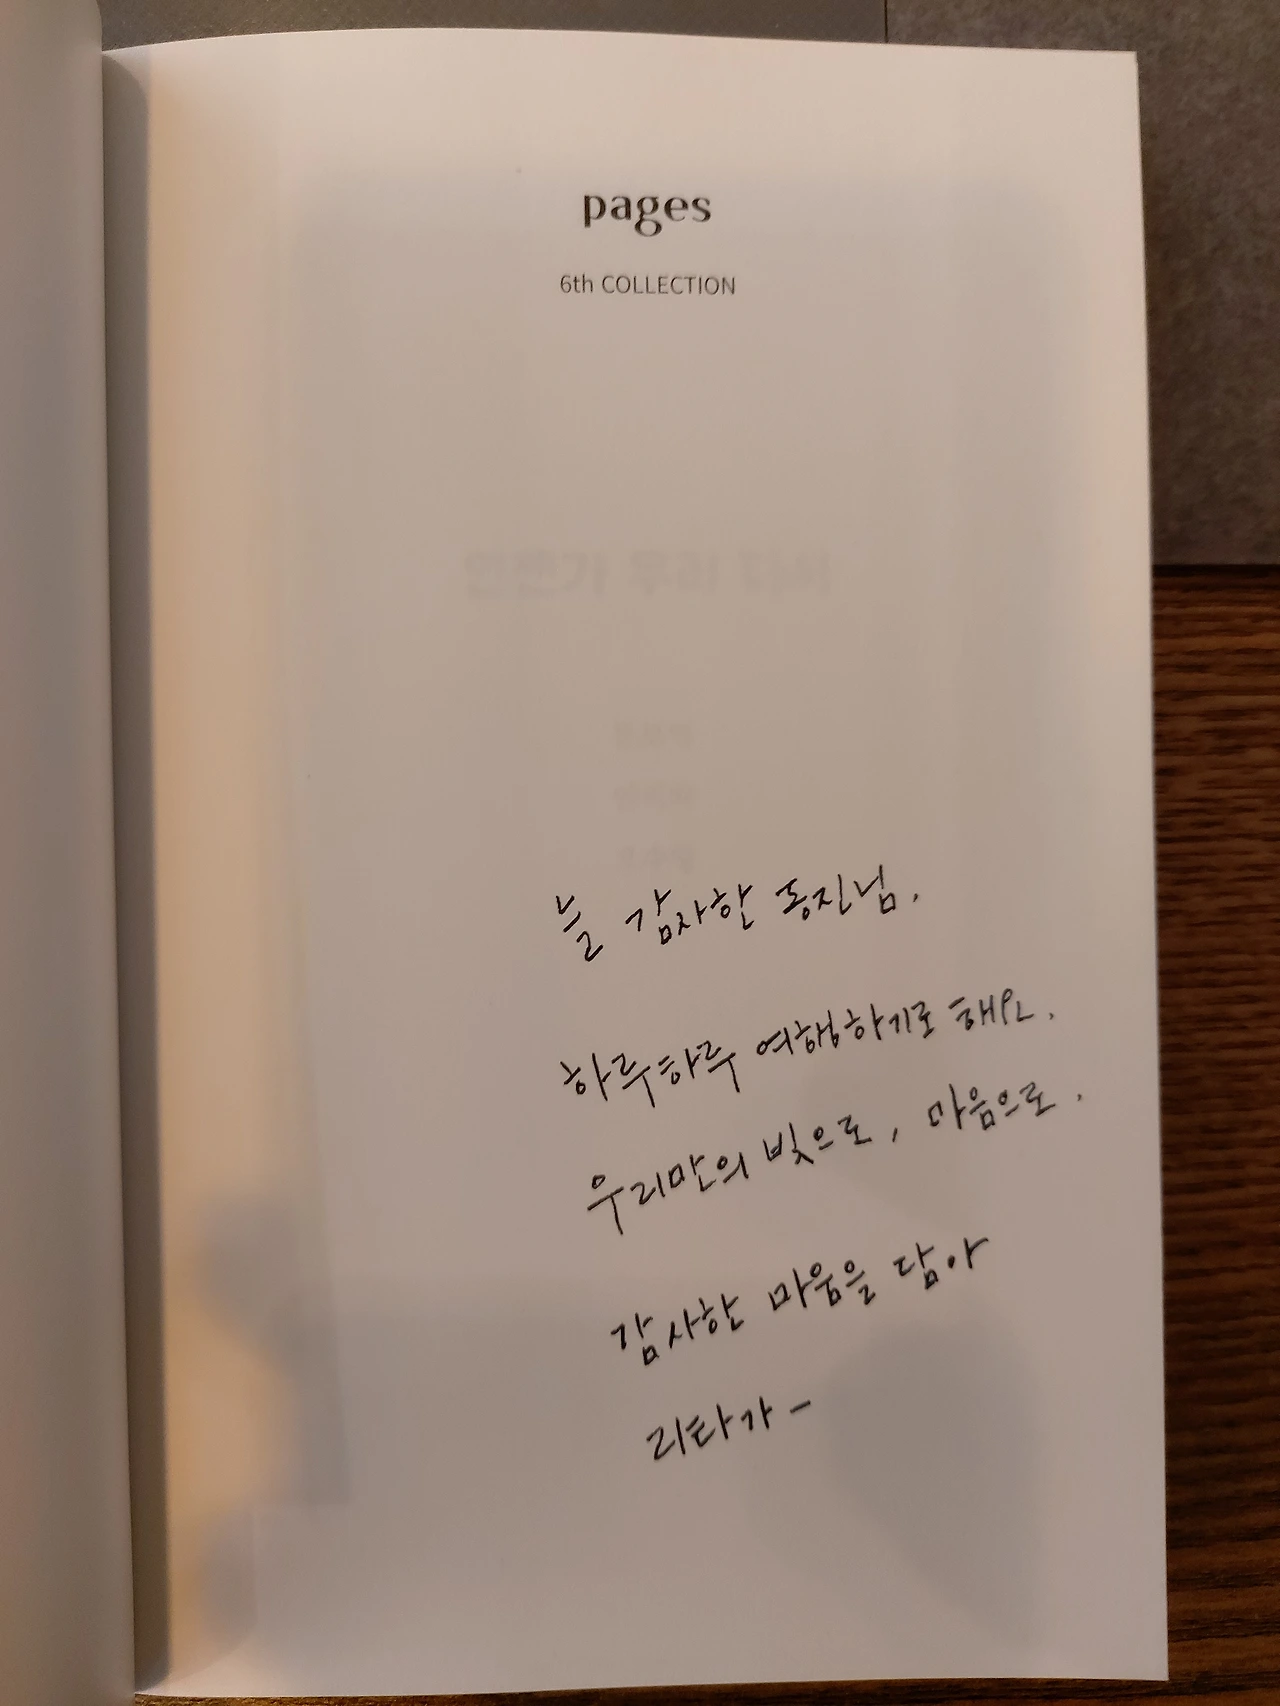 pages
6th COLLECTION
늘 감사한 동진님.
하루하루 여행하기로 해요.
우리만의 빛으로, 마음으로.
감사한 마음을 담아
리타가 -